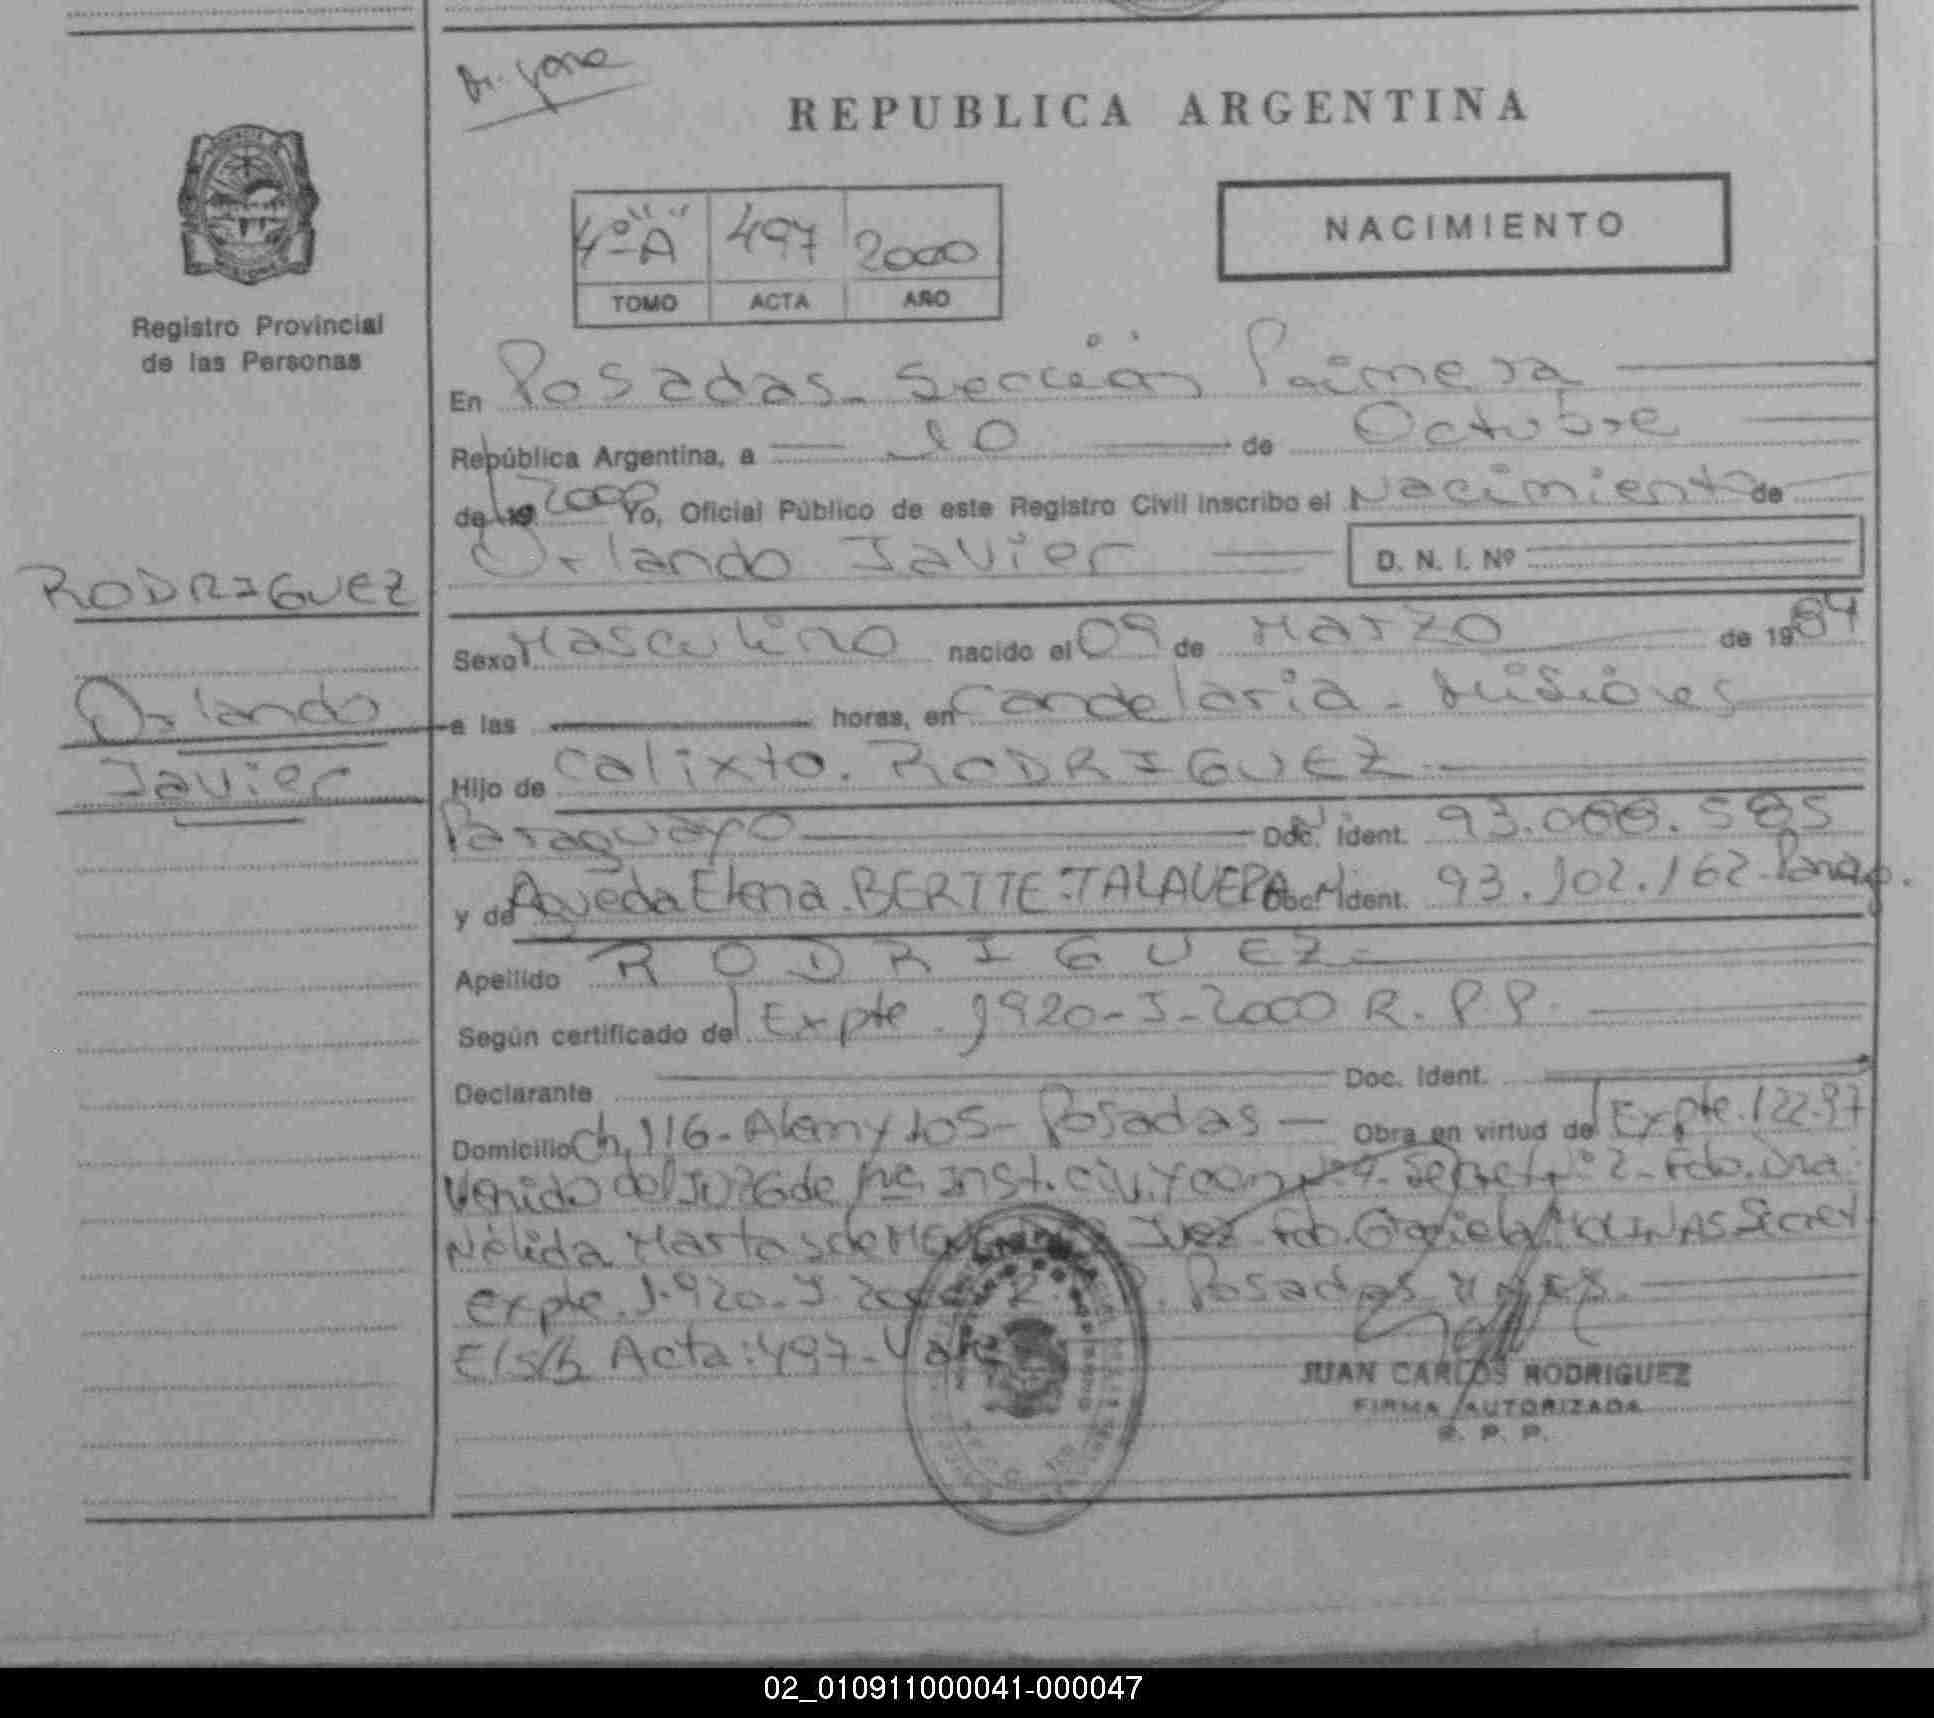 REPUBLICA ARGENTINA
NACIMIENTO
4º "A" 497 2000
TOMO ACTA AÑO
Registro Provincial
de las Personas
En Posadas - Sección Primera
República Argentina, a 10 de Octubre
de 19 2000 Yo, Oficial Público de este Registro Civil inscribo el Nacimiento de
Orlando Javier
D. N. I. Nº
RODRIGUEZ
Orlando
Javier
Sexo Masculino nacido el 09 de Marzo de 1984
a las horas, en Candelaria - Misiones
Hijo de Calixto. RODRIGUEZ
Paraguayo Doc. Ident. 93.088.585
y de Agueda Elena. BERTTE-TALAVERA Doc. Ident. 93.102.162 Parag.
Apellido RODRIGUEZ
Según certificado del Expte. 1920-J-2000 R.P.P.
Declarante Doc. Ident.
Domicilio Ch. 116 - Alem y 105 - Posadas - Obra en virtud del Expte. 122-97
Venido del JUZG de 1ra Inst. civ. y com Nº 4 - Secret. Nº 2 - Fdo. Dra.
Nélida Marta Juez Fdo. Graciela Secret.
expte. 1.920 - J Posadas
E/s/b Acta: 497 - Vale
JUAN CARLOS RODRIGUEZ
FIRMA AUTORIZADA
R. P. P.
02_010911000041-000047